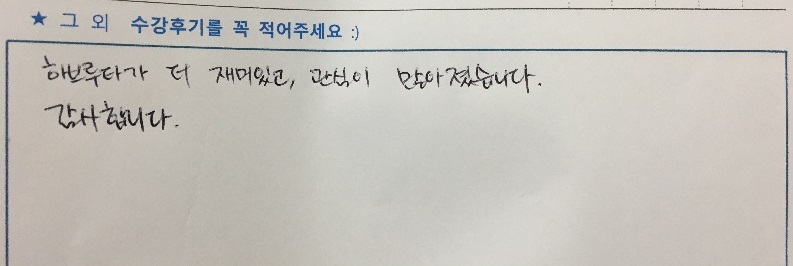 ★ 그 외 수강후기를 꼭 적어주세요 :)
하브루타가 더 재미있고, 관심이 많아졌습니다.
감사합니다.